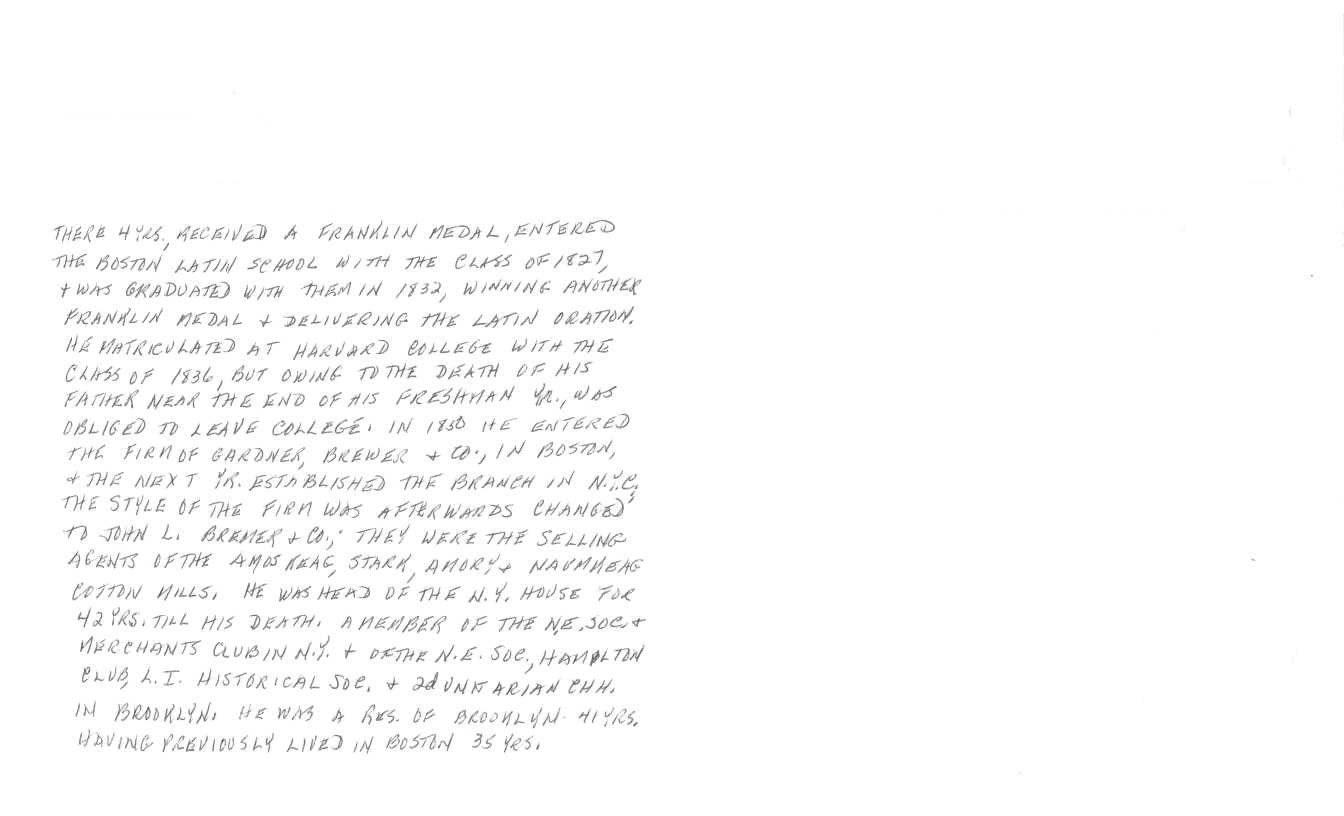 THERE 4 YRS., RECEIVED A FRANKLIN MEDAL, ENTERED
THE BOSTON LATIN SCHOOL WITH THE CLASS OF 1827,
+ WAS GRADUATED WITH THEM IN 1832, WINNING ANOTHER
FRANKLIN MEDAL + DELIVERING THE LATIN ORATION.
HE MATRICULATED AT HARVARD COLLEGE WITH THE
CLASS OF 1836, BUT OWING TO THE DEATH OF HIS
FATHER NEAR THE END OF HIS FRESHMAN YR., WAS
OBLIGED TO LEAVE COLLEGE. IN 1850 HE ENTERED
THE FIRM OF GARDNER, BREWER + CO., IN BOSTON,
+ THE NEXT YR. ESTABLISHED THE BRANCH IN N.Y.C.;
THE STYLE OF THE FIRM WAS AFTERWARDS CHANGED
TO JOHN L. BREMER + CO.; THEY WERE THE SELLING
AGENTS OF THE AMOSKEAG, STARK, AMORY, + NAUMKEAG
COTTON MILLS. HE WAS HEAD OF THE N.Y. HOUSE FOR
42 YRS. TILL HIS DEATH. A MEMBER OF THE N.E. SOC. +
MERCHANTS CLUB IN N.Y. + OF THE N.E. SOC., HAMILTON
CLUB, L.I. HISTORICAL SOC. + 2d UNITARIAN CHH.
IN BROOKLYN. HE WAS A RES. OF BROOKLYN 41 YRS.
HAVING PREVIOUSLY LIVED IN BOSTON 35 YRS.